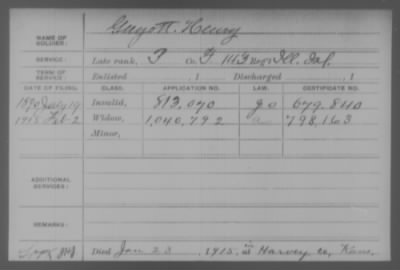 NAME OF SOLDIER: Guyott, Henry
SERVICE: Late rank, P Co. F, 143 Reg't Ill. Inf.
TERM OF SERVICE: Enlisted , 1 Discharged , 1
DATE OF FILING. CLASS. APPLICATION NO. LAW. CERTIFICATE NO.
1890 July 19 Invalid, 813,070 679.840
1915 Feb-2 Widow, 1,040,792 798,163
Minor,
ADDITIONAL SERVICES:
REMARKS:
Died Jan 23, 1915, at Harvey co, Kans.